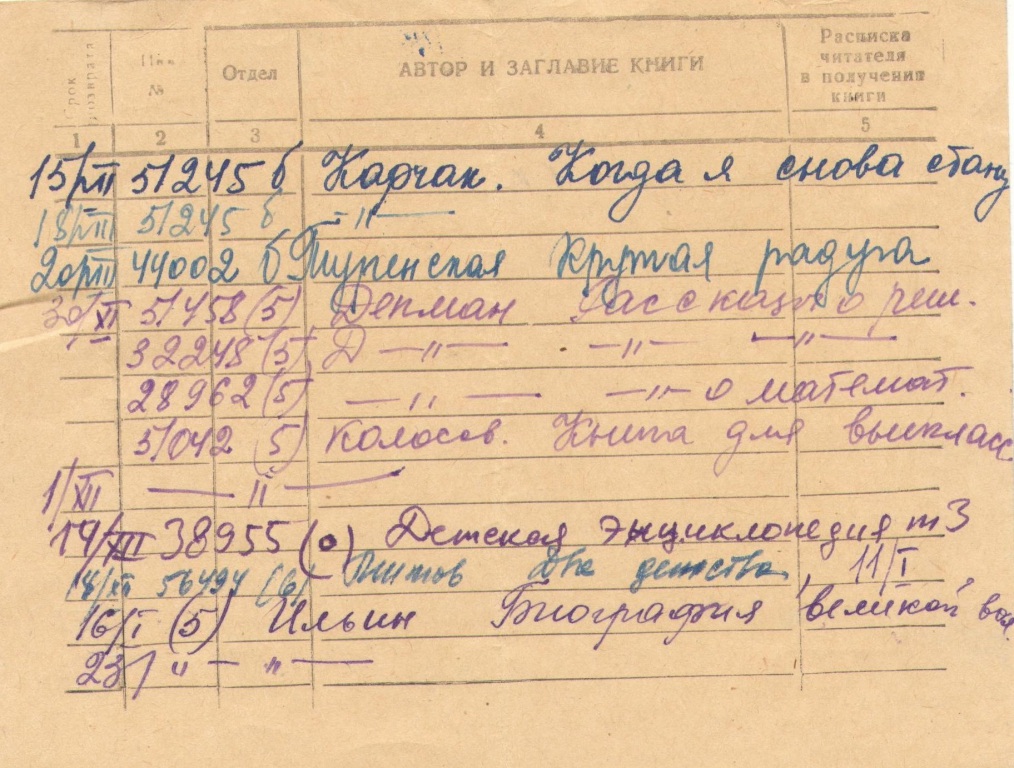 Срок возврата Инв. № Отдел АВТОР И ЗАГЛАВИЕ КНИГИ Расписка читателя в получении книги
1 2 3 4 5
15/VII 51245 б Карчак. Когда я снова стану
18/VIII 51245 б —"—
20/VIII 44002 б Крутая радуга
30/XI 51458 (5) Депман Рассказы о реш.
32248 (5) Д —"— —"— —"—
28962 (5) —"— —"— о математ.
51042 (5) Колосов. Книга для внекласс.
1/XII —"—
14/XII 38955 (о) Детская энциклопедия т 3
18/XII 56494 (б) Титов Два детства 11/I
16/I (5) Ильин Биография великой
23/ " — " —